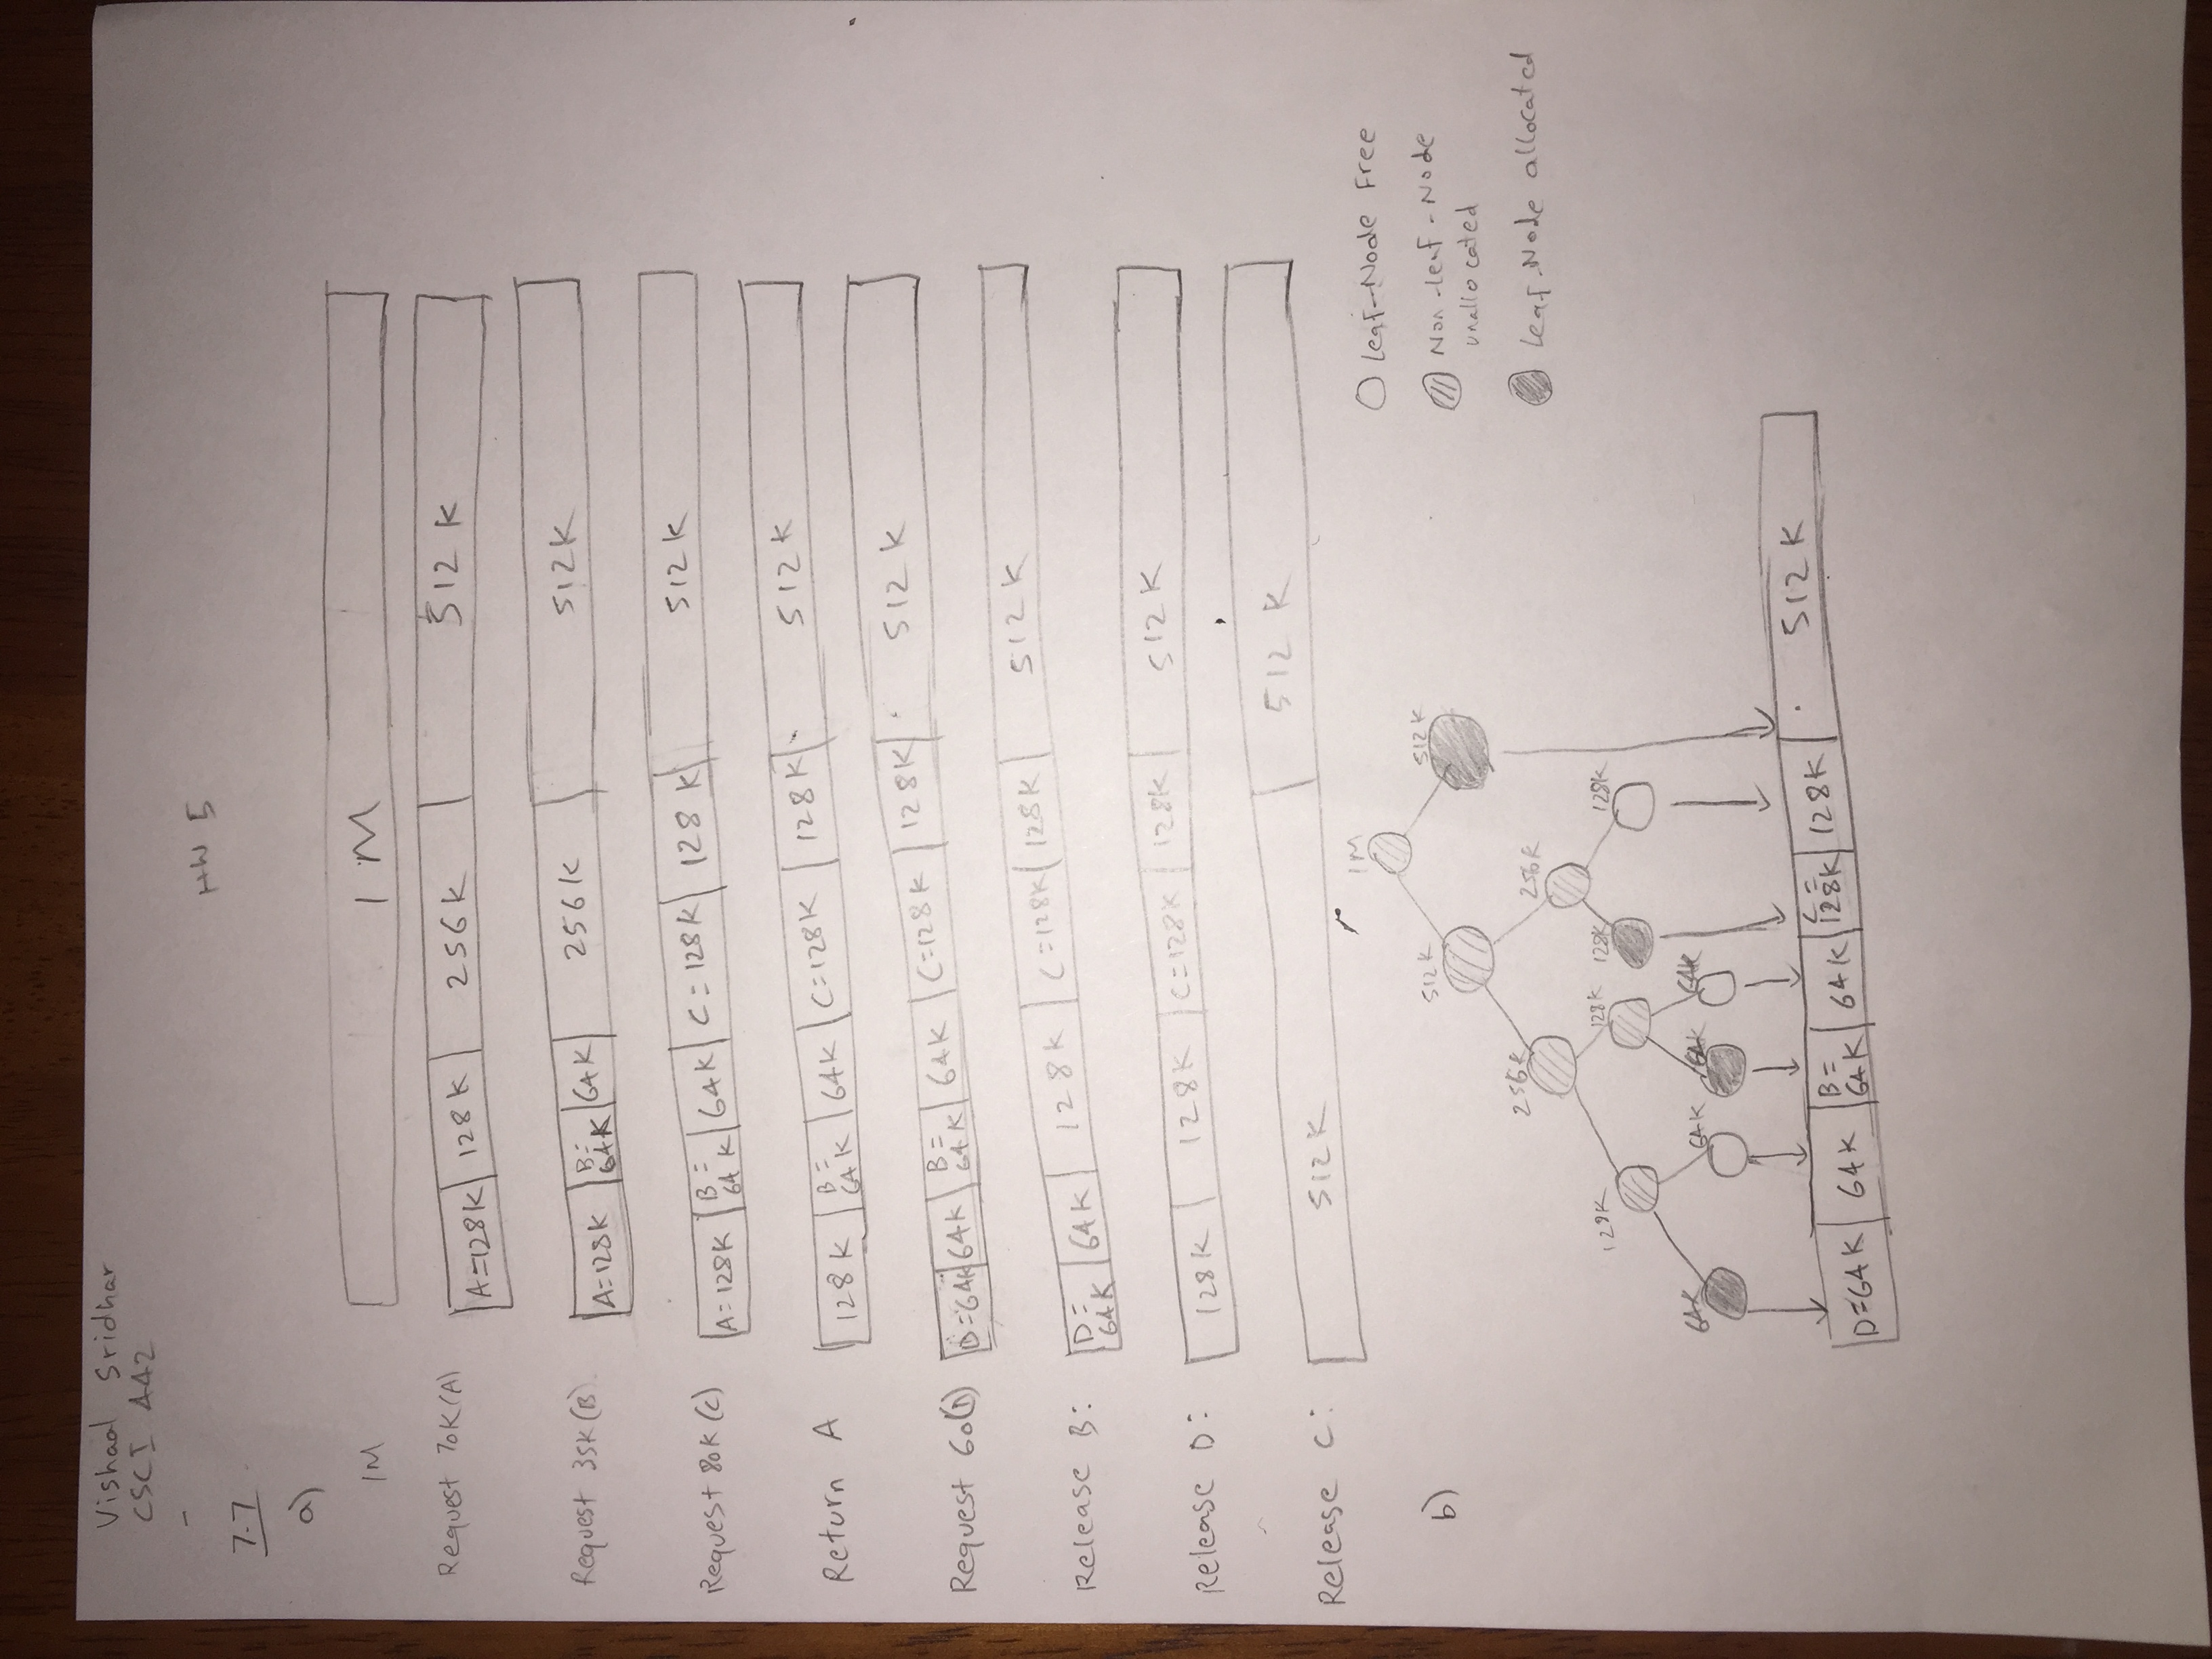 Vishaal Sridhar
CSCI 442
-
HW 5
7.7
a)
1M 1M
Request 70K(A) A=128K 128K 256K 512K
Request 35K(B) A=128K B=64K 64K 256K 512K
Request 80K(C) A=128K B=64K 64K C=128K 128K 512K
Return A 128K B=64K 64K C=128K 128K 512K
Request 60(D) D=64K 64K B=64K 64K C=128K 128K 512K
Release B: D=64K 64K 128K C=128K 128K 512K
Release D: 128K 128K C=128K 128K 512K
Release C: 512K 512K
b)
1M
512K 512K
256K 256K
128K 128K 128K 128K
64K 64K 64K 64K
Leaf-Node Free
Non-leaf-Node
unallocated
Leaf-Node allocated
D=64K 64K B=64K 64K C=128K 128K 512K